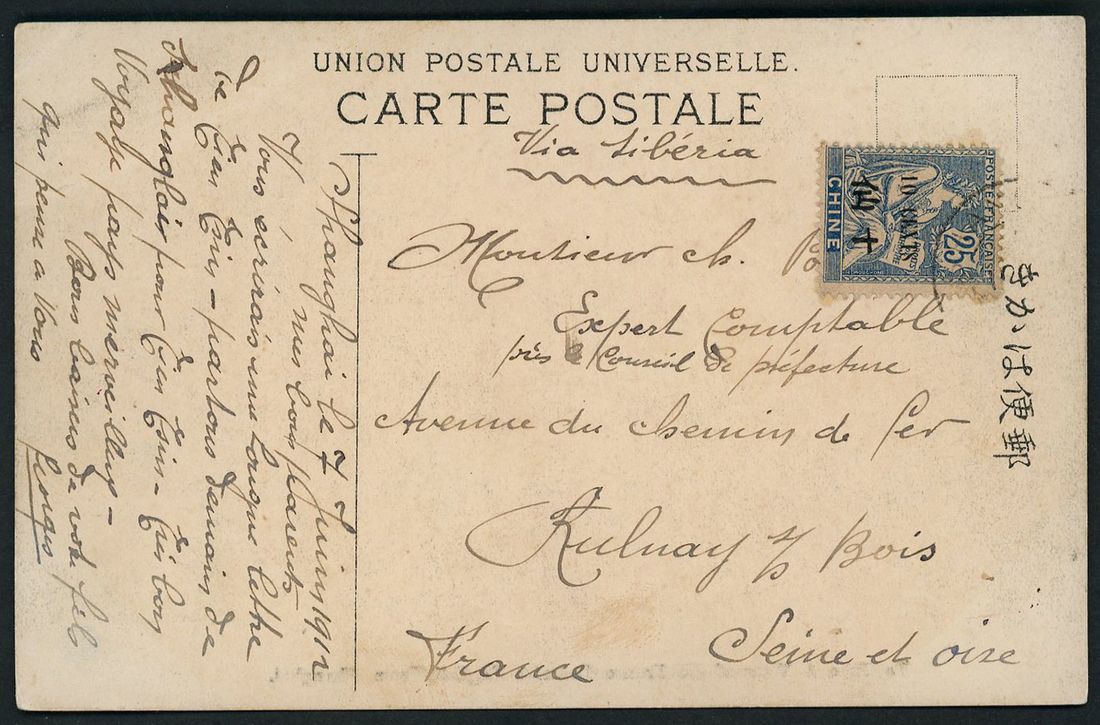 UNION POSTALE UNIVERSELLE.
CARTE POSTALE
Via Sibéria
Shanghai le 7 Juin 1912
mes bons Parents
Vous ecrirais une longue lettre
de Tien Tsin - partons demain de
Shanghai pour Tien Tsin - Très bon
Voyage pays merveilleux -
Bons baisers de votre fils
qui pense a Vous
Monsieur ch.
Expert Comptable
près le Conseil de préfecture
Avenue du chemin de fer
Aulnay s/ Bois
Seine et oise
France
POSTE FRANÇAISE
25
10 CENTS
CHINE
きかは便郵